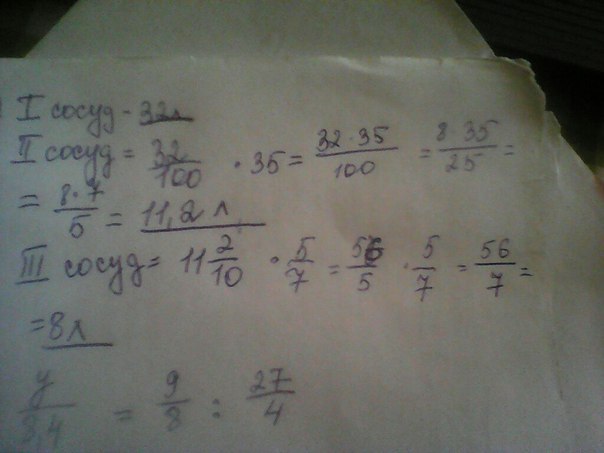 I сосуд - 32л
II сосуд = 32/100 · 35 = 32·35/100 = 8·35/25 =
= 8·7/5 = 11,2 л
III сосуд = 11 2/10 · 5/7 = 56/5 · 5/7 = 56/7 =
= 8л
y/8,4 = 9/8 : 27/4